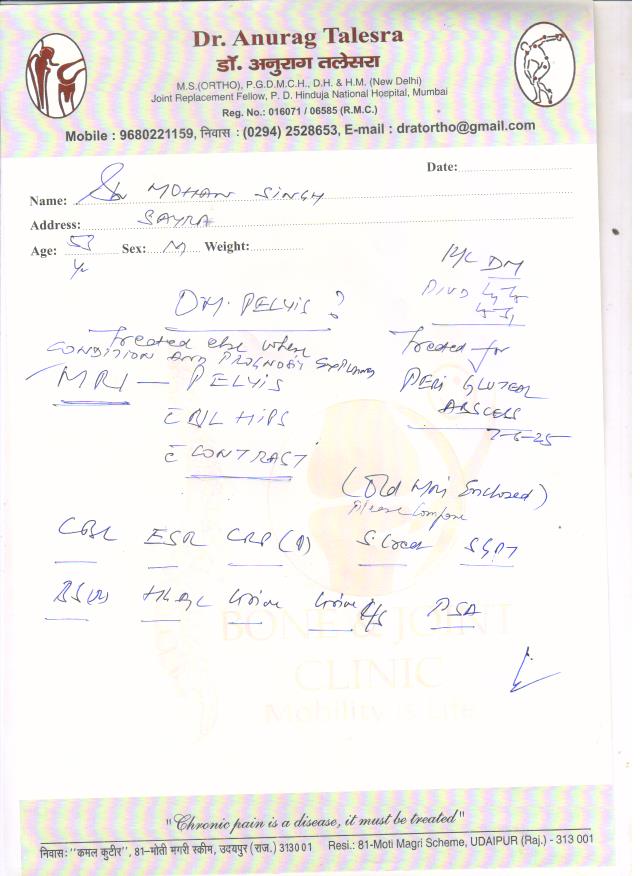 Dr. Anurag Talesra
डॉ. अनुराग तलेसरा
M.S.(ORTHO), P.G.D.M.C.H., D.H. & H.M. (New Delhi)
Joint Replacement Fellow, P. D. Hinduja National Hospital, Mumbai
Reg. No.: 016071 / 06585 (R.M.C.)
Mobile : 9680221159, निवास : (0294) 2528653, E-mail : dratortho@gmail.com
Date:
Name: MOHAN SINGH
Address: SAYRA
Age: 53 Yr Sex: M Weight:
DM
PIVD L4-L5
PELVIS ?
Treated else where
CONDITION AND PROGNOSIS Explained
Treated for
PERI GLUTEAL
ABSCESS
7-6-25
MRI — PELVIS
c̄ B/L HIPS
c̄ CONTRAST
(Old MRI Enclosed)
Please Compare
CBC ESR CRP (Q) S. Creat SGPT
BS(R) HbA1C Urine Urine C/S PSA
BONE & JOINT
CLINIC
Mobility is Life
"Chronic pain is a disease, it must be treated"
निवास: "कमल कुटीर", 81-मोती मगरी स्कीम, उदयपुर (राज.) 313001 Resi.: 81-Moti Magri Scheme, UDAIPUR (Raj.) - 313 001